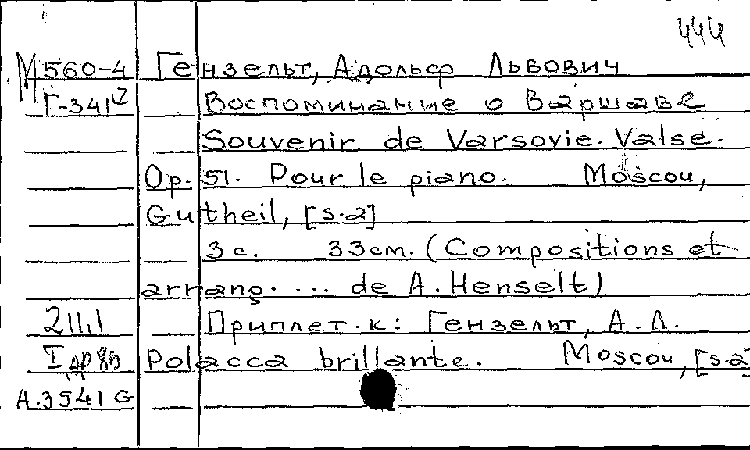 444
М560-4 Гензельт, Адольф Львович
Г-341² Воспоминание о Варшаве
Souvenir de Varsovie. Valse.
Op. 51. Pour le piano. Moscou,
Gutheil, [s.a]
3 с. 33 см. (Compositions et
arrang. ... de A. Henselt)
211,1 Приплет. к: Гензельт, А. Л.
Polacca brillante. Moscou, [s.a]
A.3541 G